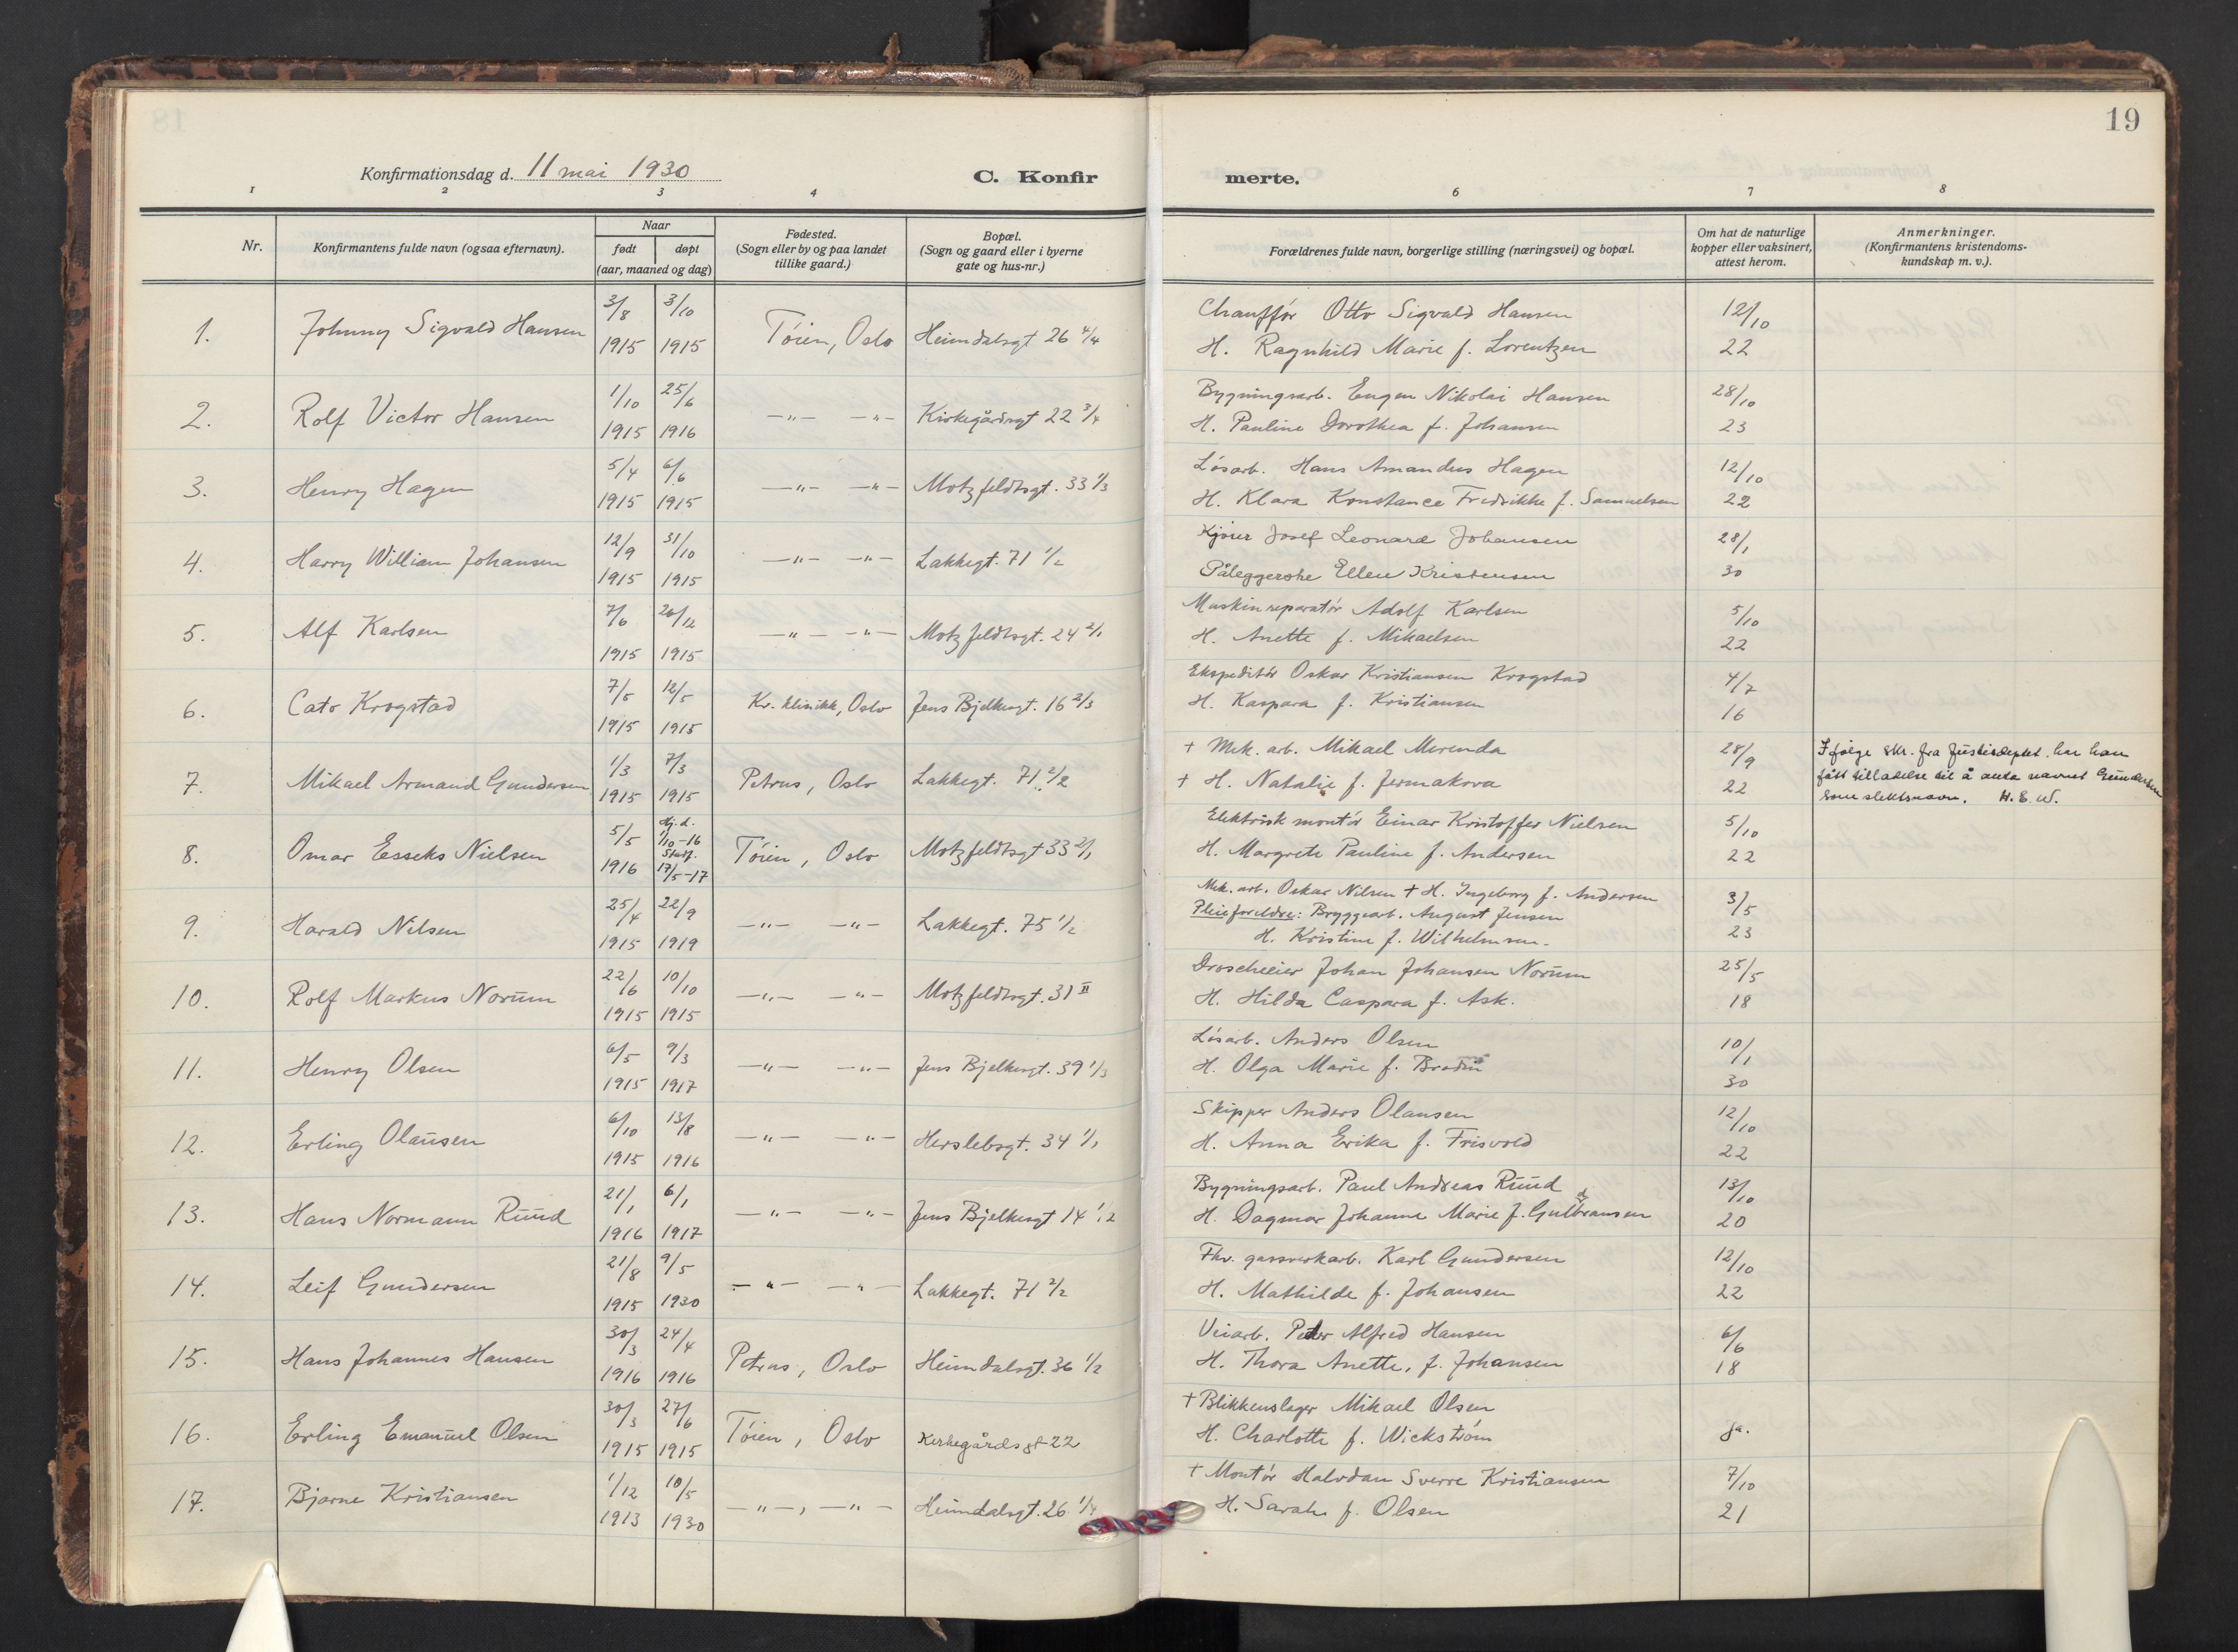 19
Konfirmationsdag d. 11 mai 1930
C. Konfir
merte.
1 2 3 4 6 7 8
Nr.
Konfirmantens fulde navn (ogsaa efternavn).
Naar
født døpt
(aar, maaned og dag)
Fødested.
(Sogn eller by og paa landet
tillike gaard.)
Bopæl.
(Sogn og gaard eller i byerne
gate og hus-nr.)
Forældrenes fulde navn, borgerlige stilling (næringsvei) og bopæl.
Om hat de naturlige
kopper eller vaksinert,
attest herom.
Anmerkninger.
(Konfirmantens kristendoms-
kundskap m. v.).
1. Johnny Sigvald Hansen 3/8 1915 3/10 1915 Tøien, Oslo Heimdalsgt 26 4/4
Chauffør Otto Sigvald Hansen 12/10
H. Ragnhild Marie f. Lorentzen 22
2. Rolf Victor Hansen 1/10 1915 25/6 1916 —"— —"— Kirkegårdsgt 22 3/4
Bygningsarb. Eugen Nikolai Hansen 28/10
H. Pauline Dorothea f. Johansen 23
3. Henry Hagen 5/4 1915 6/6 1915 —"— —"— Motzfeldtsgt. 33 1/3
Løsarb. Hans Amandus Hagen 12/10
H. Klara Konstance Fredrikke f. Samuelsen 22
4. Harry William Johansen 12/9 1915 31/10 1915 —"— —"— Lakkegt. 71 1/2
Kjører Josef Leonard Johansen 28/1
Påleggerske Ellen Kristensen 30
5. Alf Karlsen 7/6 1915 26/12 1915 —"— —"— Motzfeldtsgt. 24 2/1
Maskinreparatør Adolf Karlsen 5/10
H. Anette f. Mikaelsen 22
6. Cato Krogstad 7/5 1915 12/5 1915 Kv. klinikk, Oslo Jens Bjelkesgt. 16 2/3
Ekspeditør Oskar Kristiansen Krogstad 4/7
H. Kaspara f. Kristiansen 16
7. Mikael Armand Gundersen 1/3 1915 7/3 1915 Petrus, Oslo Lakkegt. 71 2/2
+ Mek. arb. Mikael Merenda 28/9
+ H. Natalie f. Jermakova 22
Ifølge skr. fra Justisdeptet. har han
fått tilladelse til å anta navnet Gundersen
som slektsnavn. H. E. W.
8. Omar Esseks Nielsen 5/5 1916 Hj. d. 1/10-16 Stadf. 17/5-17 Tøien, Oslo Motzfeldtsgt 33 2/1
Elektrisk montør Einar Kristoffer Nielsen 5/10
H. Margrete Pauline f. Andersen 22
9. Harald Nilsen 25/4 1915 22/9 1919 —"— —"— Lakkegt. 75 1/2
Mek. arb. Oskar Nilsen + H. Ingeborg f. Andersen 3/5
Pleieforeldre: Bryggearb. August Jensen
H. Kristine f. Wilhelmsen. 23
10. Rolf Markus Norum 22/6 1915 10/10 1915 —"— —"— Motzfeldtsgt. 31 II
Droscheeier Johan Johansen Norum 25/5
H. Hilda Caspara f. Ask. 18
11. Henry Olsen 6/5 1915 9/3 1917 —"— —"— Jens Bjelkesgt. 39 1/3
Løsarb. Anders Olsen 10/1
H. Olga Marie f. Brodin 30
12. Erling Olausen 6/10 1915 13/8 1916 —"— —"— Herslebsgt. 34 1/1
Skipper Anders Olausen 12/10
H. Anna Erika f. Frisvold 22
13. Hans Normann Ruud 21/1 1916 6/1 1917 —"— —"— Jens Bjelkesgt 14 1/2
Bygningsarb. Paul Andreas Ruud 13/10
H. Dagmar Johanne Marie f. Gulbransen 20
14. Leif Gundersen 21/8 1915 9/5 1930 —"— —"— Lakkegt. 71 2/2
Fhv. gassverkarb. Karl Gundersen 12/10
H. Mathilde f. Johansen 22
15. Hans Johannes Hansen 30/3 1916 24/4 1916 Petrus, Oslo Heimdalsgt. 36 1/2
Veiarb. Peder Alfred Hansen 6/6
H. Thora Anette, f. Johansen 18
16. Erling Emanuel Olsen 30/3 1915 27/6 1915 Tøien, Oslo Kirkegårdsgt 22
+ Blikkenslager Mikael Olsen
H. Charlotte f. Wickstrøm ja.
17. Bjarne Kristiansen 1/12 1913 10/5 1930 —"—, —"— Heimdalsgt. 26 1/4
+ Montør Halvdan Sverre Kristiansen 7/10
H. Sarah f. Olsen 21